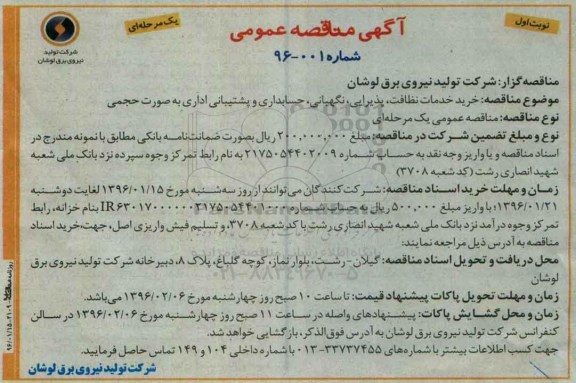 نوبت اول
آگهی مناقصه عمومی
یک مرحله‌ای
شماره ۰۰۱-۹۶
شرکت تولید
نیروی برق لوشان
مناقصه گزار: شرکت تولید نیروی برق لوشان
موضوع مناقصه: خرید خدمات نظافت، پذیرایی، نگهبانی، حسابداری و پشتیبانی اداری به صورت حجمی
نوع مناقصه: مناقصه عمومی یک مرحله‌ای
نوع و مبلغ تضمین شرکت در مناقصه: مبلغ ۲۰۰,۰۰۰,۰۰۰ ریال بصورت ضمانت‌نامه بانکی مطابق با نمونه مندرج در
اسناد مناقصه و یا واریز وجه نقد به حساب شماره ۲۱۷۵۰۵۴۴۰۲۰۰۹ به نام رابط تمرکز وجوه سپرده نزد بانک ملی شعبه
شهید انصاری رشت (کد شعبه ۳۷۰۸)
زمان و مهلت خرید اسناد مناقصه: شرکت کنندگان می‌توانند از روز سه‌شنبه مورخ ۱۳۹۶/۰۱/۱۵ لغایت دوشنبه
۱۳۹۶/۰۱/۲۱؛ با واریز مبلغ ۵۰۰,۰۰۰ ریال به حساب شماره بنام خزانه، رابط
تمرکز وجوه درآمد نزد بانک ملی شعبه شهید انصاری رشت با کد شعبه ۳۷۰۸، و تسلیم فیش واریزی اصل، جهت خرید اسناد
مناقصه به آدرس ذیل مراجعه نمایند:
محل دریافت و تحویل اسناد مناقصه: گیلان- رشت، بلوار نماز، کوچه گلباغ، پلاک ۸، دبیرخانه شرکت تولید نیروی برق
لوشان
زمان و مهلت تحویل پاکات پیشنهاد قیمت: تا ساعت ۱۰ صبح روز چهارشنبه مورخ ۱۳۹۶/۰۲/۰۶ می‌باشد.
زمان و محل گشایش پاکات: پیشنهادهای واصله در ساعت ۱۱ صبح روز چهارشنبه مورخ ۱۳۹۶/۰۲/۰۶ در سالن
کنفرانس شرکت تولید نیروی برق لوشان به آدرس فوق‌الذکر، بازگشایی خواهد شد.
جهت کسب اطلاعات بیشتر با شماره‌های ۳۳۷۳۷۴۵۵-۰۱۳ با شماره داخلی ۱۰۴ و ۱۴۹ تماس حاصل فرمایید.
شرکت تولید نیروی برق لوشان